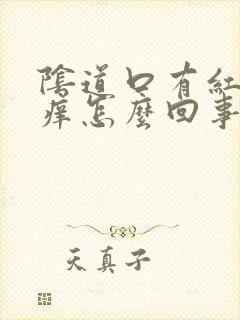 陰道口有紅
癢怎麼回事
天真子